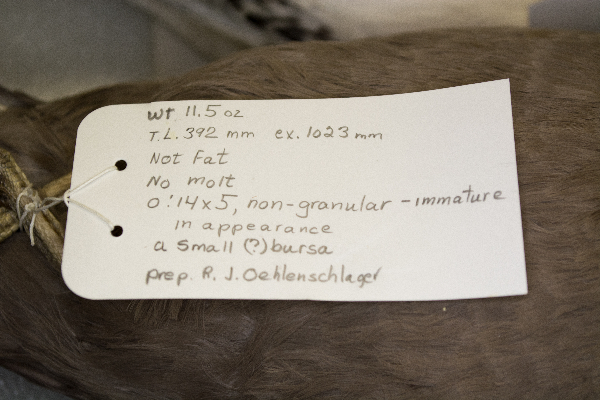 wt 11.5 oz
T.L. 392 mm ex. 1023 mm
Not Fat
No molt
O: 14 x 5, non-granular - immature
in appearance
a small (?) bursa
prep. R. J. Oehlenschlager